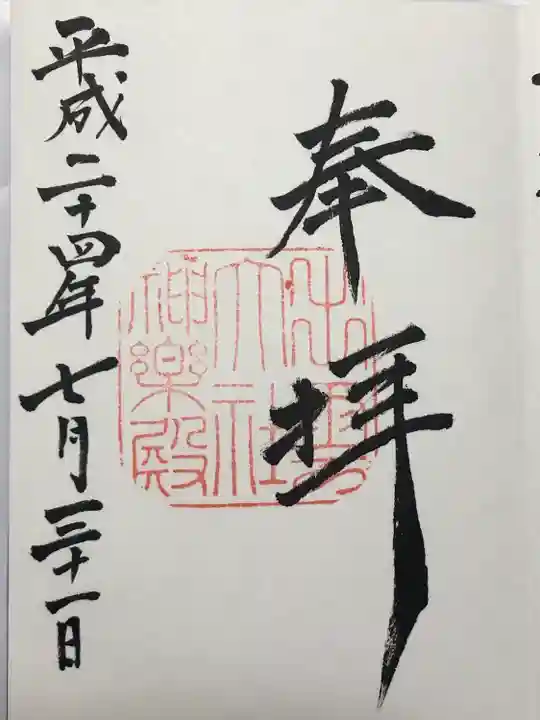 奉拝
出雲
大社
神楽殿
平成二十四年七月三十一日